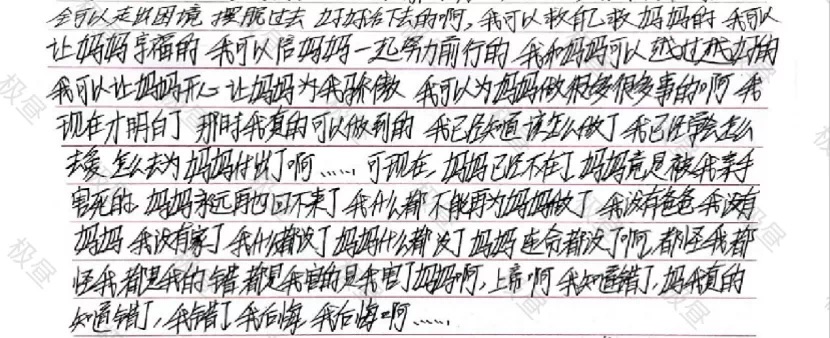 会可以走出困境 摆脱过去 好好活下去的啊,我可以救自己救妈妈的 我可以
让妈妈享福的 我可以陪妈妈一起努力前行的 我和妈妈可以越过越好的
我可以让妈妈开心 让妈妈为我骄傲 我可以为妈妈做很多很多事的啊 我
现在才明白了 那时我真的可以做到的 我已经知道该怎么做了 我已经学会怎么
去爱 怎么去为妈妈付出了啊…… 可现在,妈妈已经不在了 妈妈竟是被我亲手
害死的 妈妈永远再也回不来了 我什么都不能再为妈妈做了 我没有爸爸 我没有
妈妈 我没有家了 我什么都没了 妈妈什么都没了 妈妈连命都没了啊,都怪我都
怪我,都是我的错,都是我害的是我害了妈妈啊,上帝啊 我知道错了,妈我真的
知道错了,我错了 我后悔 我后悔啊……
极昼